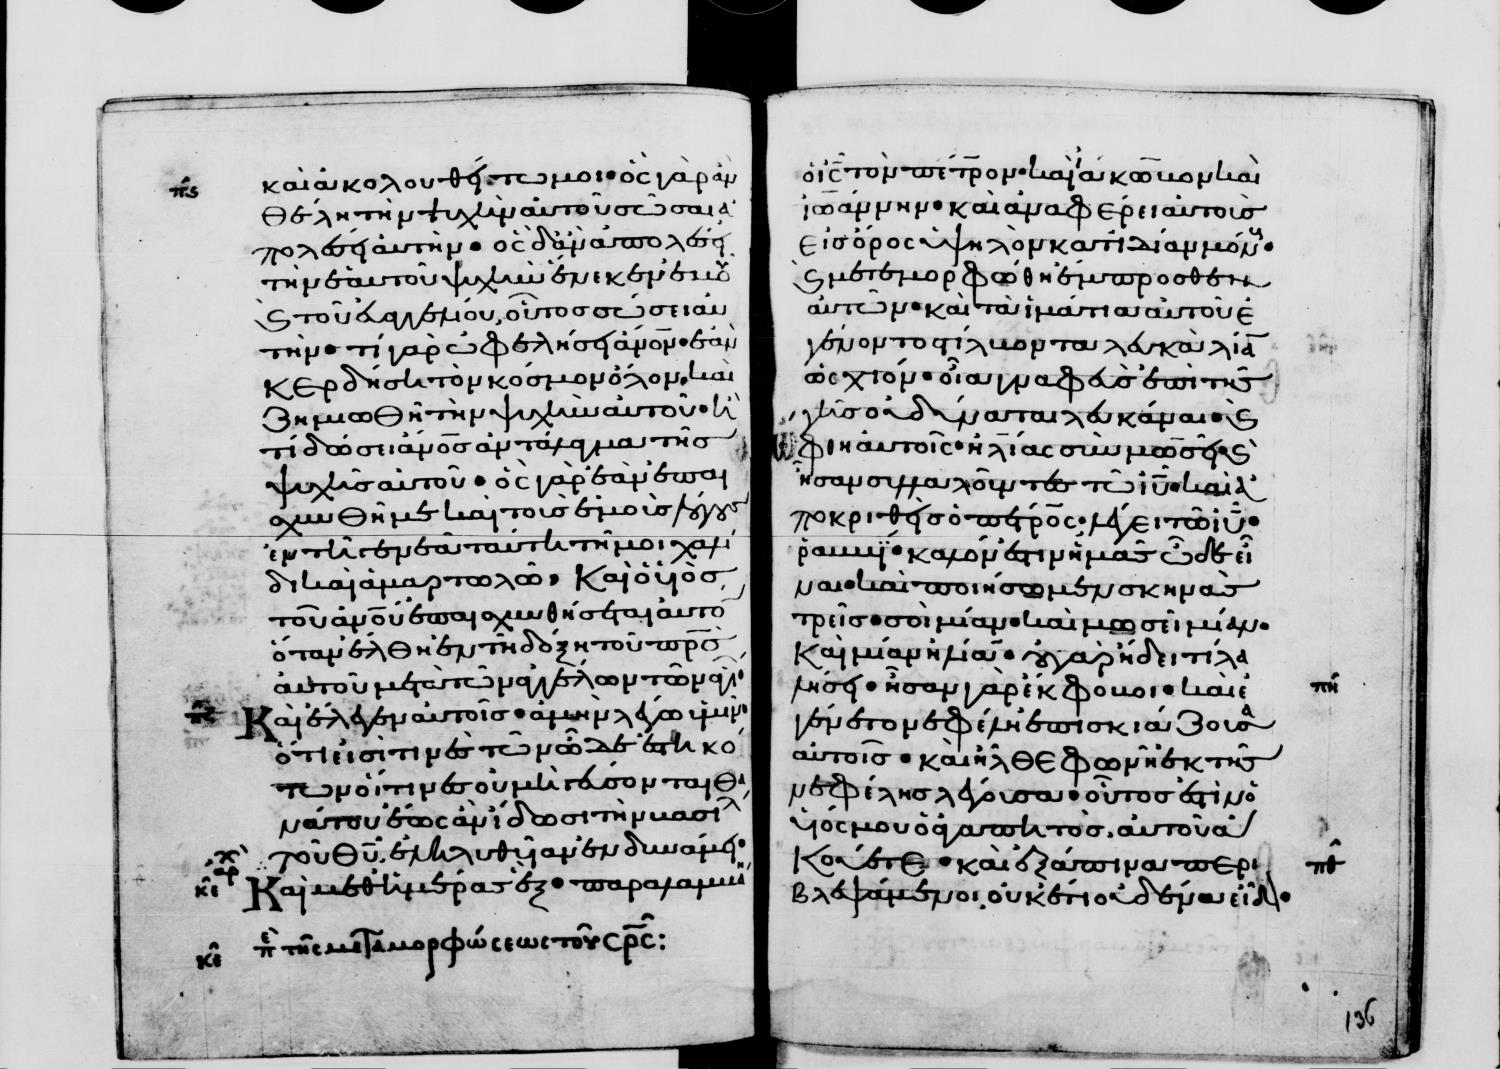 πς
καὶ ἀκολουθείτω μοι· ὃς γὰρ ἂν
θέλη τὴν ψυχὴν αὐτοῦ σῶσαι ἀ
πολέσει αὐτὴν· ὃς δ' ἂν ἀπολέσει
τὴν ἑαυτοῦ ψυχὴν ἕνεκεν ἐμοῦ
ϛ τοῦ εὐαγγελίου, οὗτος σώσει αὐ
τήν· τί γὰρ ὠφελήσει ἄνον· ἐὰν
κερδήση τὸν κόσμον ὅλον, καὶ
ζημιωθῆ τὴν ψυχὴν αὐτοῦ· ἢ
τί δώσει ἄνος ἀντάλλαγμα τῆς
ψυχῆς αὐτοῦ· ὃς γὰρ ἐὰν ἐπαι
σχυνθῆ με καὶ τοὺς ἐμοὺς λόγους
ἐν τῆ γενεᾶ ταύτη τῆ μοιχαλί
δι καὶ ἁμαρτωλῶ· Καὶ ὁ υἱὸς
τοῦ ἀνου ἐπαισχυνθήσεται αὐτὸ
ὅταν ἔλθη ἐν τῆ δόξη τοῦ πρς
αὐτοῦ μετὰ τῶν ἀγγέλων τῶν ἁγί
Καὶ ἔλεγεν αὐτοῖς· ἀμὴν λέγω ὑμῖν·
ὅτι εἰσί τινες τῶν ὧδε ἑστηκό
των οἵτινες οὐ μὴ γεύσονται θα
νάτου ἕως ἂν ἴδωσι τὴν βασιλ
τοῦ θυ. ἐληλυθυῖαν ἐν δυνάμει·
κε Καὶ μεθ' ἡμέρας ἓξ· παραλαμβάν
κε ἐπ τῆς μεταμορφώσεως τοῦ ϲρϲ:
ὁ ις τὸν πέτρον· καὶ ἰάκωβον καὶ
ἰωάννην· καὶ ἀναφέρει αὐτοὺς
εἰς ὄρος ὑψηλὸν κατιδίαν μόν·
ϛ μετεμορφώθη ἔμπροσθεν
αὐτῶν· καὶ τὰ ἱμάτια αὐτοῦ ἐ
γένοντο στίλβοντα λευκὰ λία
ὡς χιόν· οἷα γναφεὺς ἐπὶ τῆς
γῆς οὐ δύναται λευκάναι· ϛ
ὤφθη αὐτοῖς· ἡλίας σὺν μωσῆ· ϛ
ἦσαν συλλαλοῦντες τῶ ιυ· καὶ ἀ
ποκριθεὶς ὁ πέτρος· λέγει τῶ ιυ·
ῥαββί· καλόν ἐστιν ἡμᾶς ὧδε εἶ
ναι· καὶ ποιήσωμεν σκηνὰς
τρεῖς· σοὶ μίαν· καὶ μωσεῖ μίαν·
Καὶ μίαν ἡλία· οὐ γὰρ ἤδει τί λα
λήσει· ἦσαν γὰρ ἔκφοβοι· καὶ ἐ
πη
γένετο νεφέλη ἐπισκιάζουσα
αὐτοῖς· καὶ ἦλθε φωνὴ ἐκ τῆς
νεφέλης λέγουσα· οὗτός ἐστιν ὁ
υἱός μου ὁ ἀγαπητός. αὐτοῦ ἀ
κούετε· καὶ ἐξάπινα περι
πθ
βλεψάμενοι, οὐκέτι οὐδένα εἶδον·
136